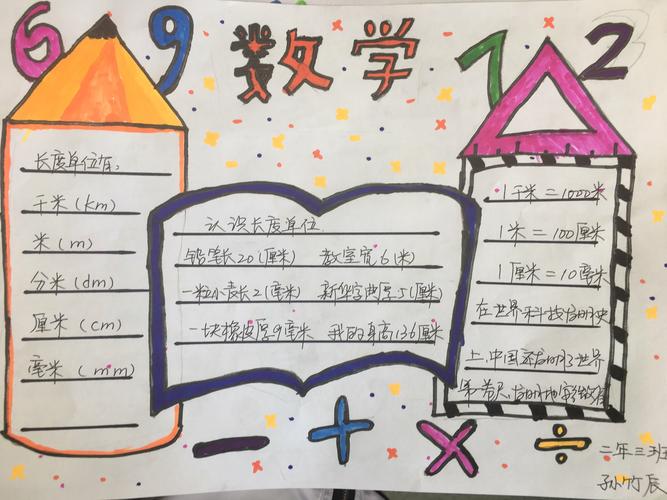 6 9 数学 7 2
长度单位有：
千米（km）
米（m）
分米（dm）
厘米（cm）
毫米（mm）
认识长度单位
铅笔长20（厘米） 教室宽6（米）
一粒小麦长2（毫米） 新华字典厚5（厘米）
一块橡皮厚9毫米 我的身高136厘米
1千米＝1000米
1米＝100厘米
1厘米＝10毫米
在世界科技发明史
上，中国还发明了世界
第一
− ＋ × ÷
二年三班
孙竹辰